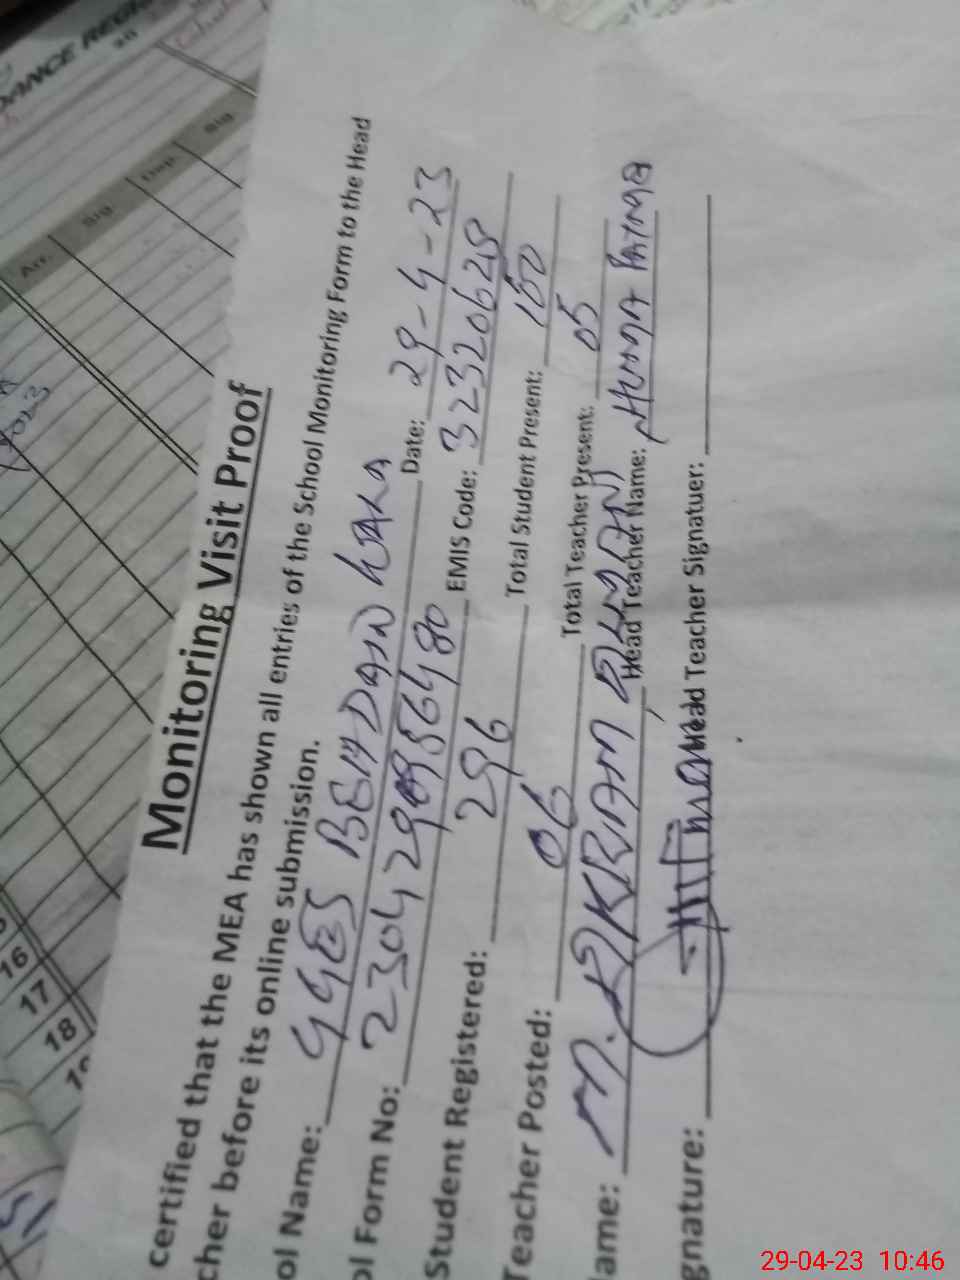 DANCE REGI
Arr. Sig. Dep. Sig
16
17
18
Monitoring Visit Proof
certified that the MEA has shown all entries of the School Monitoring Form to the Head
cher before its online submission.
ol Name: GGES BEHDAIN WALA Date: 29-4-23
ol Form No: EMIS Code: 32320628
Student Registered: 296 Total Student Present: 100
Teacher Posted: 06 Total Teacher Present: 05
lame: M. AKRAM Head Teacher Name: HUMA FATMA
gnature: Head Teacher Signatuer:
29-04-23 10:46